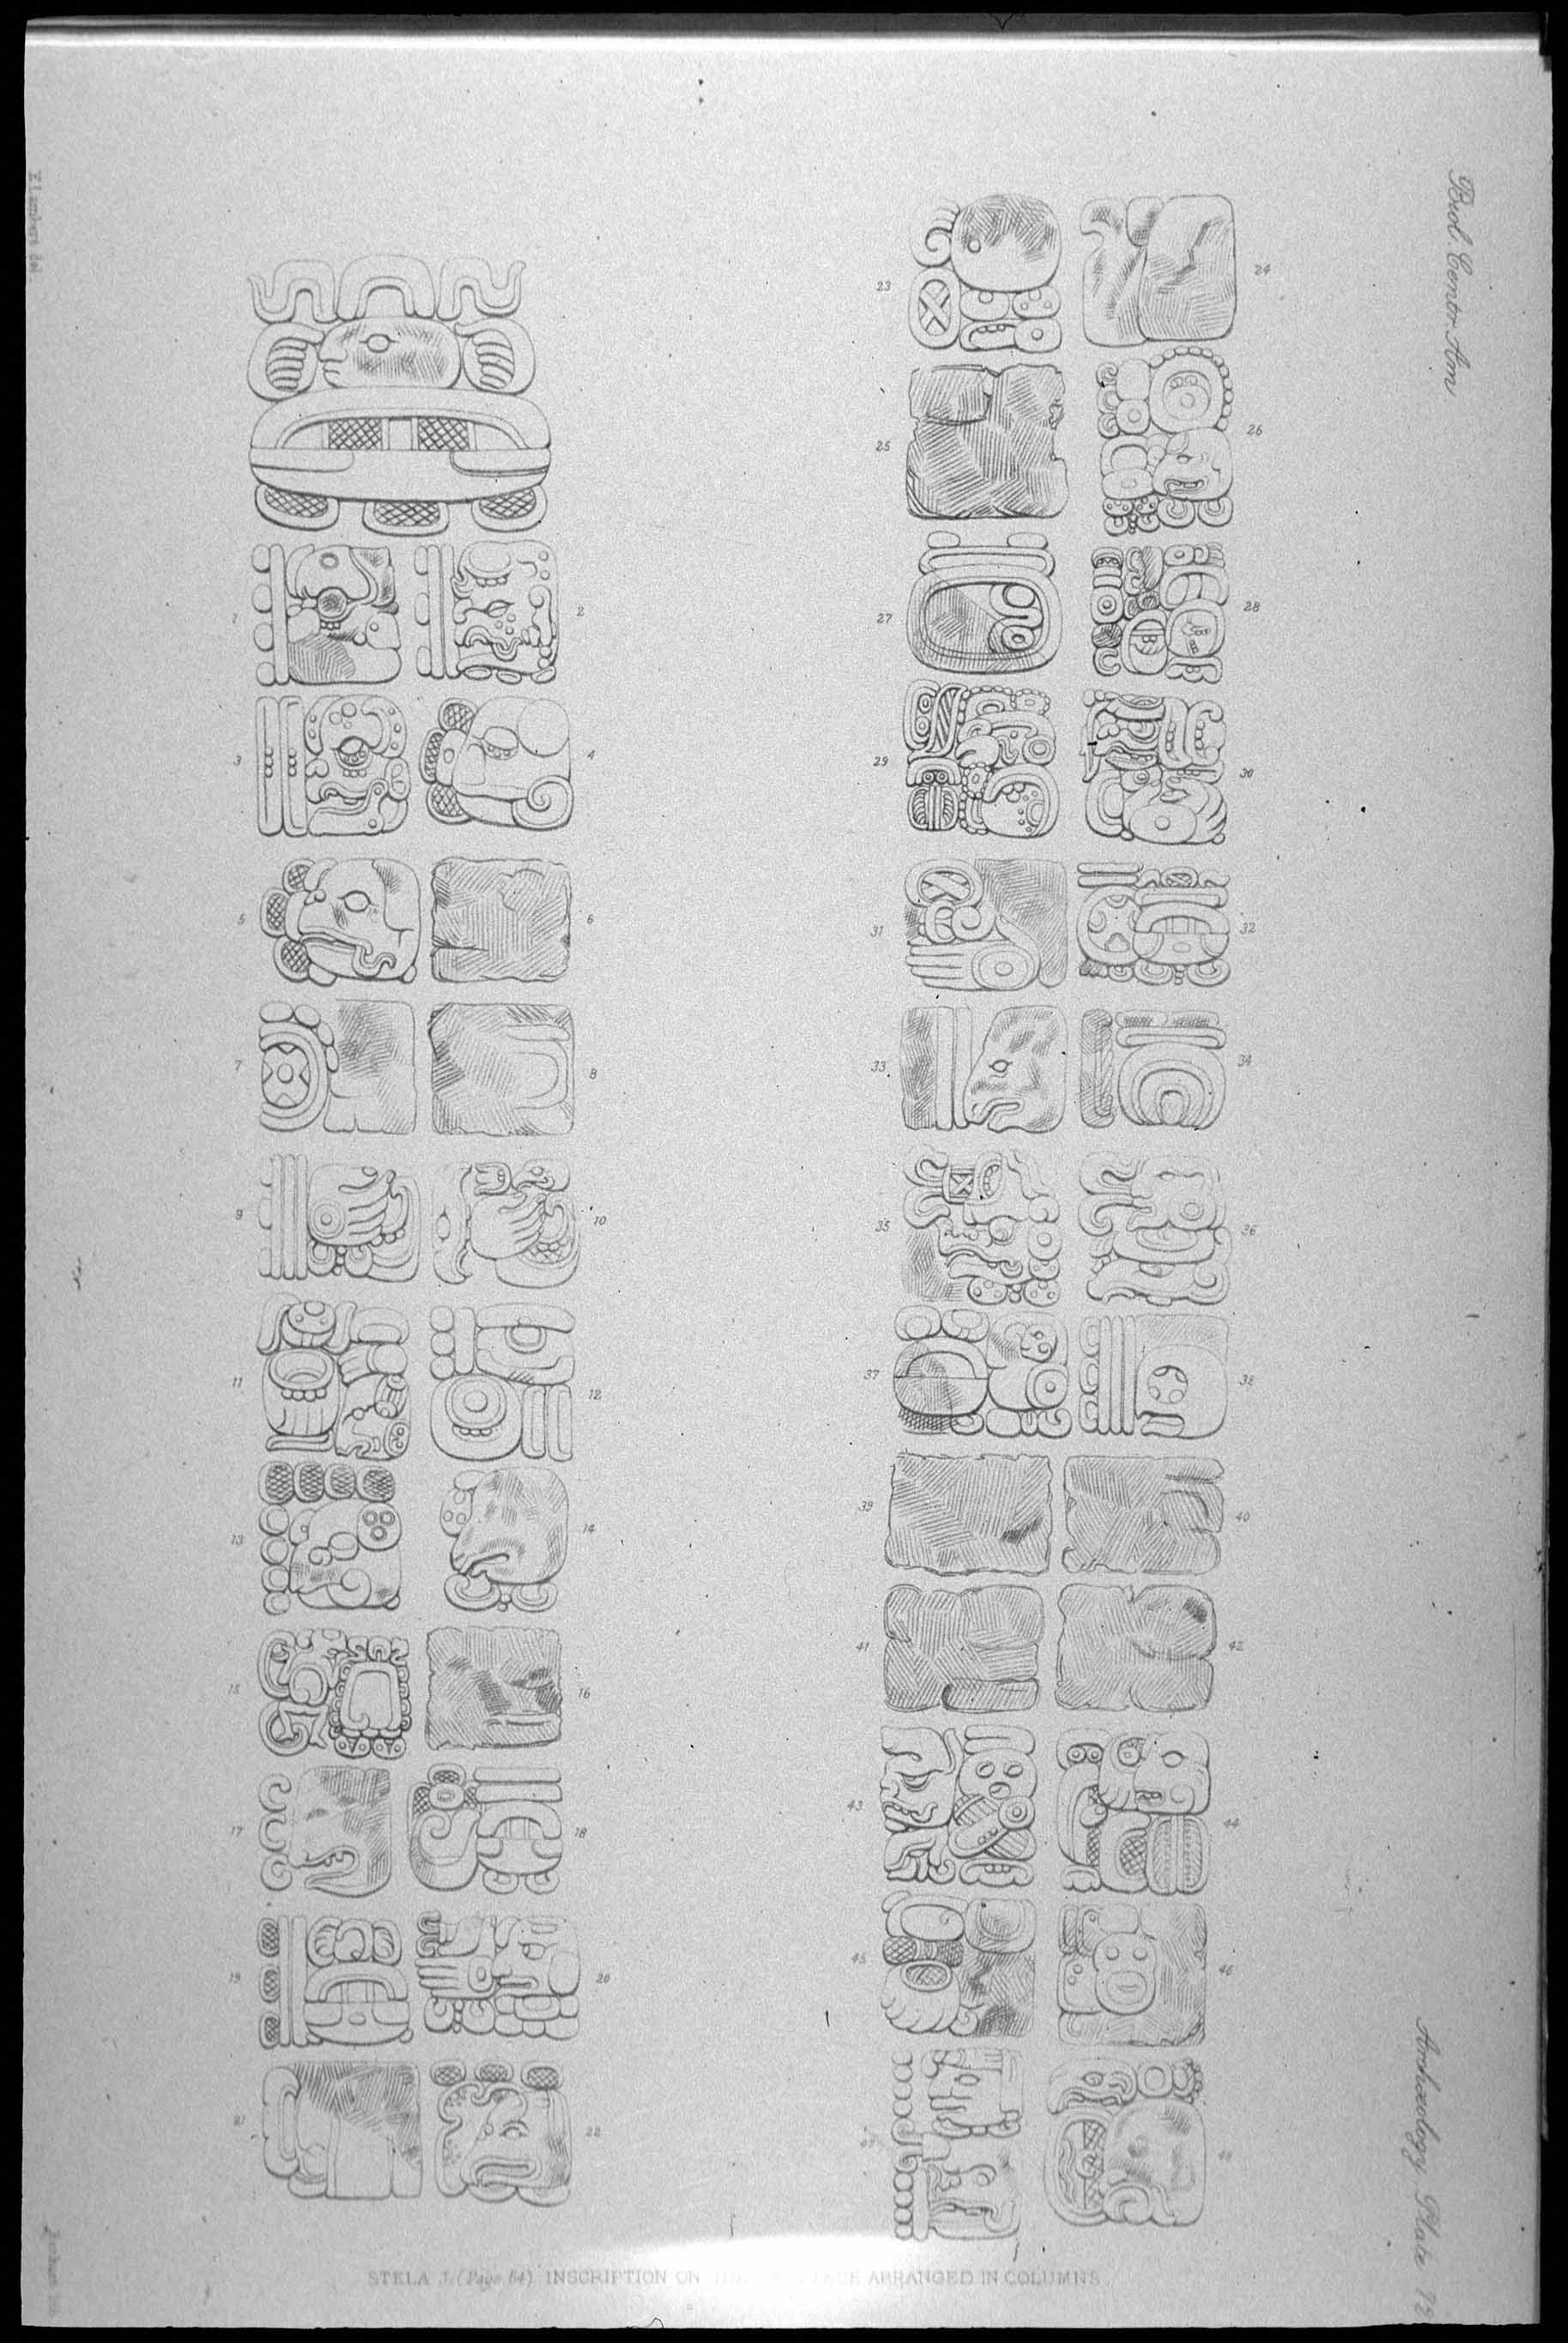 Biol. Centr. Am.
Archæology Plate
1
2
3
4
5
6
7
8
9
10
11
12
13
14
15
16
17
18
19
20
21
22
23
24
25
26
27
28
29
30
31
32
33
34
35
36
37
38
39
40
41
42
43
44
45
46
STELA J. (Page 64). INSCRIPTION ON ARRANGED IN COLUMNS.